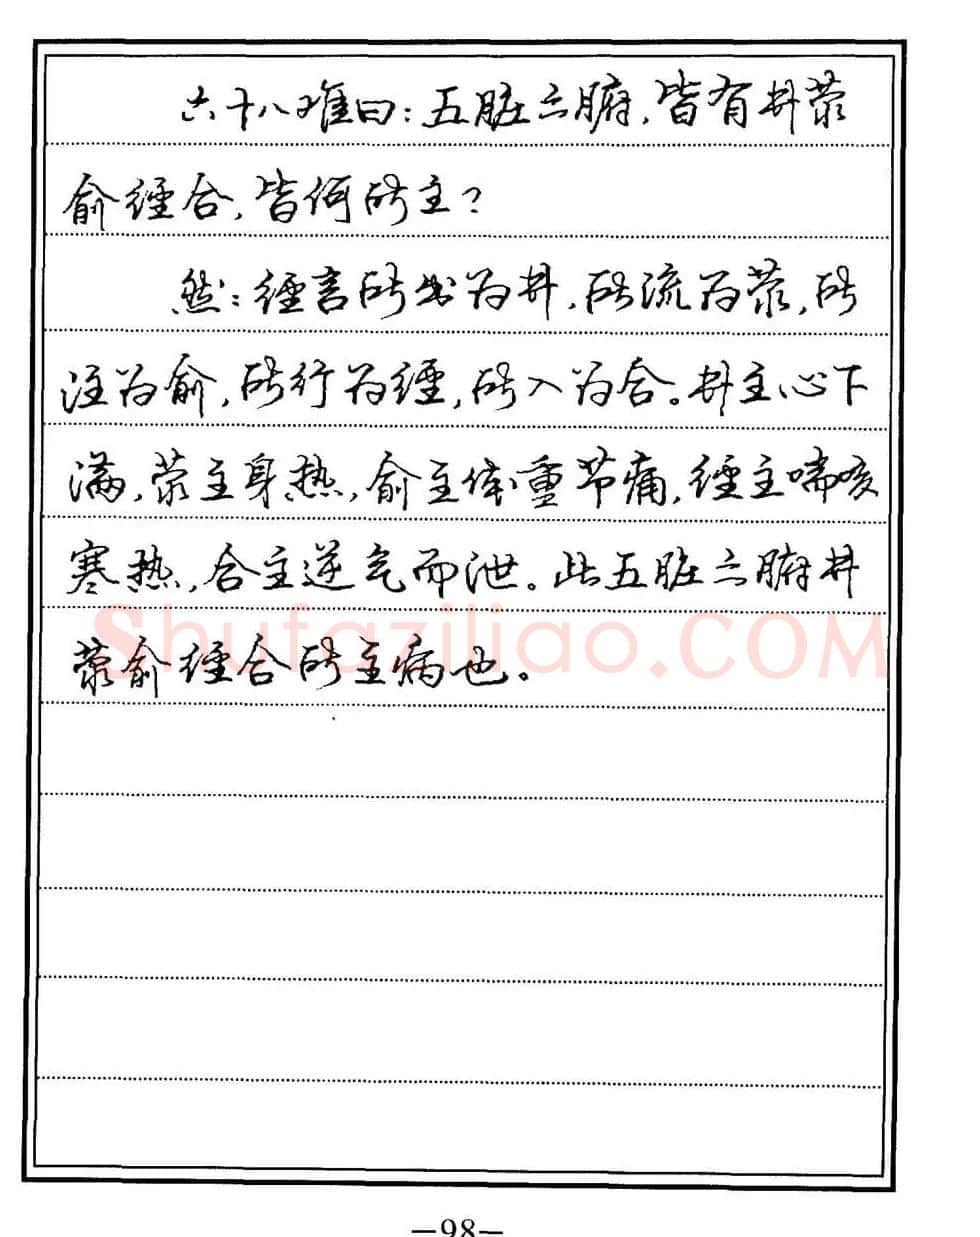 六十八难曰：五脏六腑，皆有井荥
俞经合，皆何所主？
然：经言所出为井，所流为荥，所
注为俞，所行为经，所入为合。井主心下
满，荥主身热，俞主体重节痛，经主喘咳
寒热，合主逆气而泄。此五脏六腑井
荥俞经合所主病也。
Shufaziliao.COM
—98—